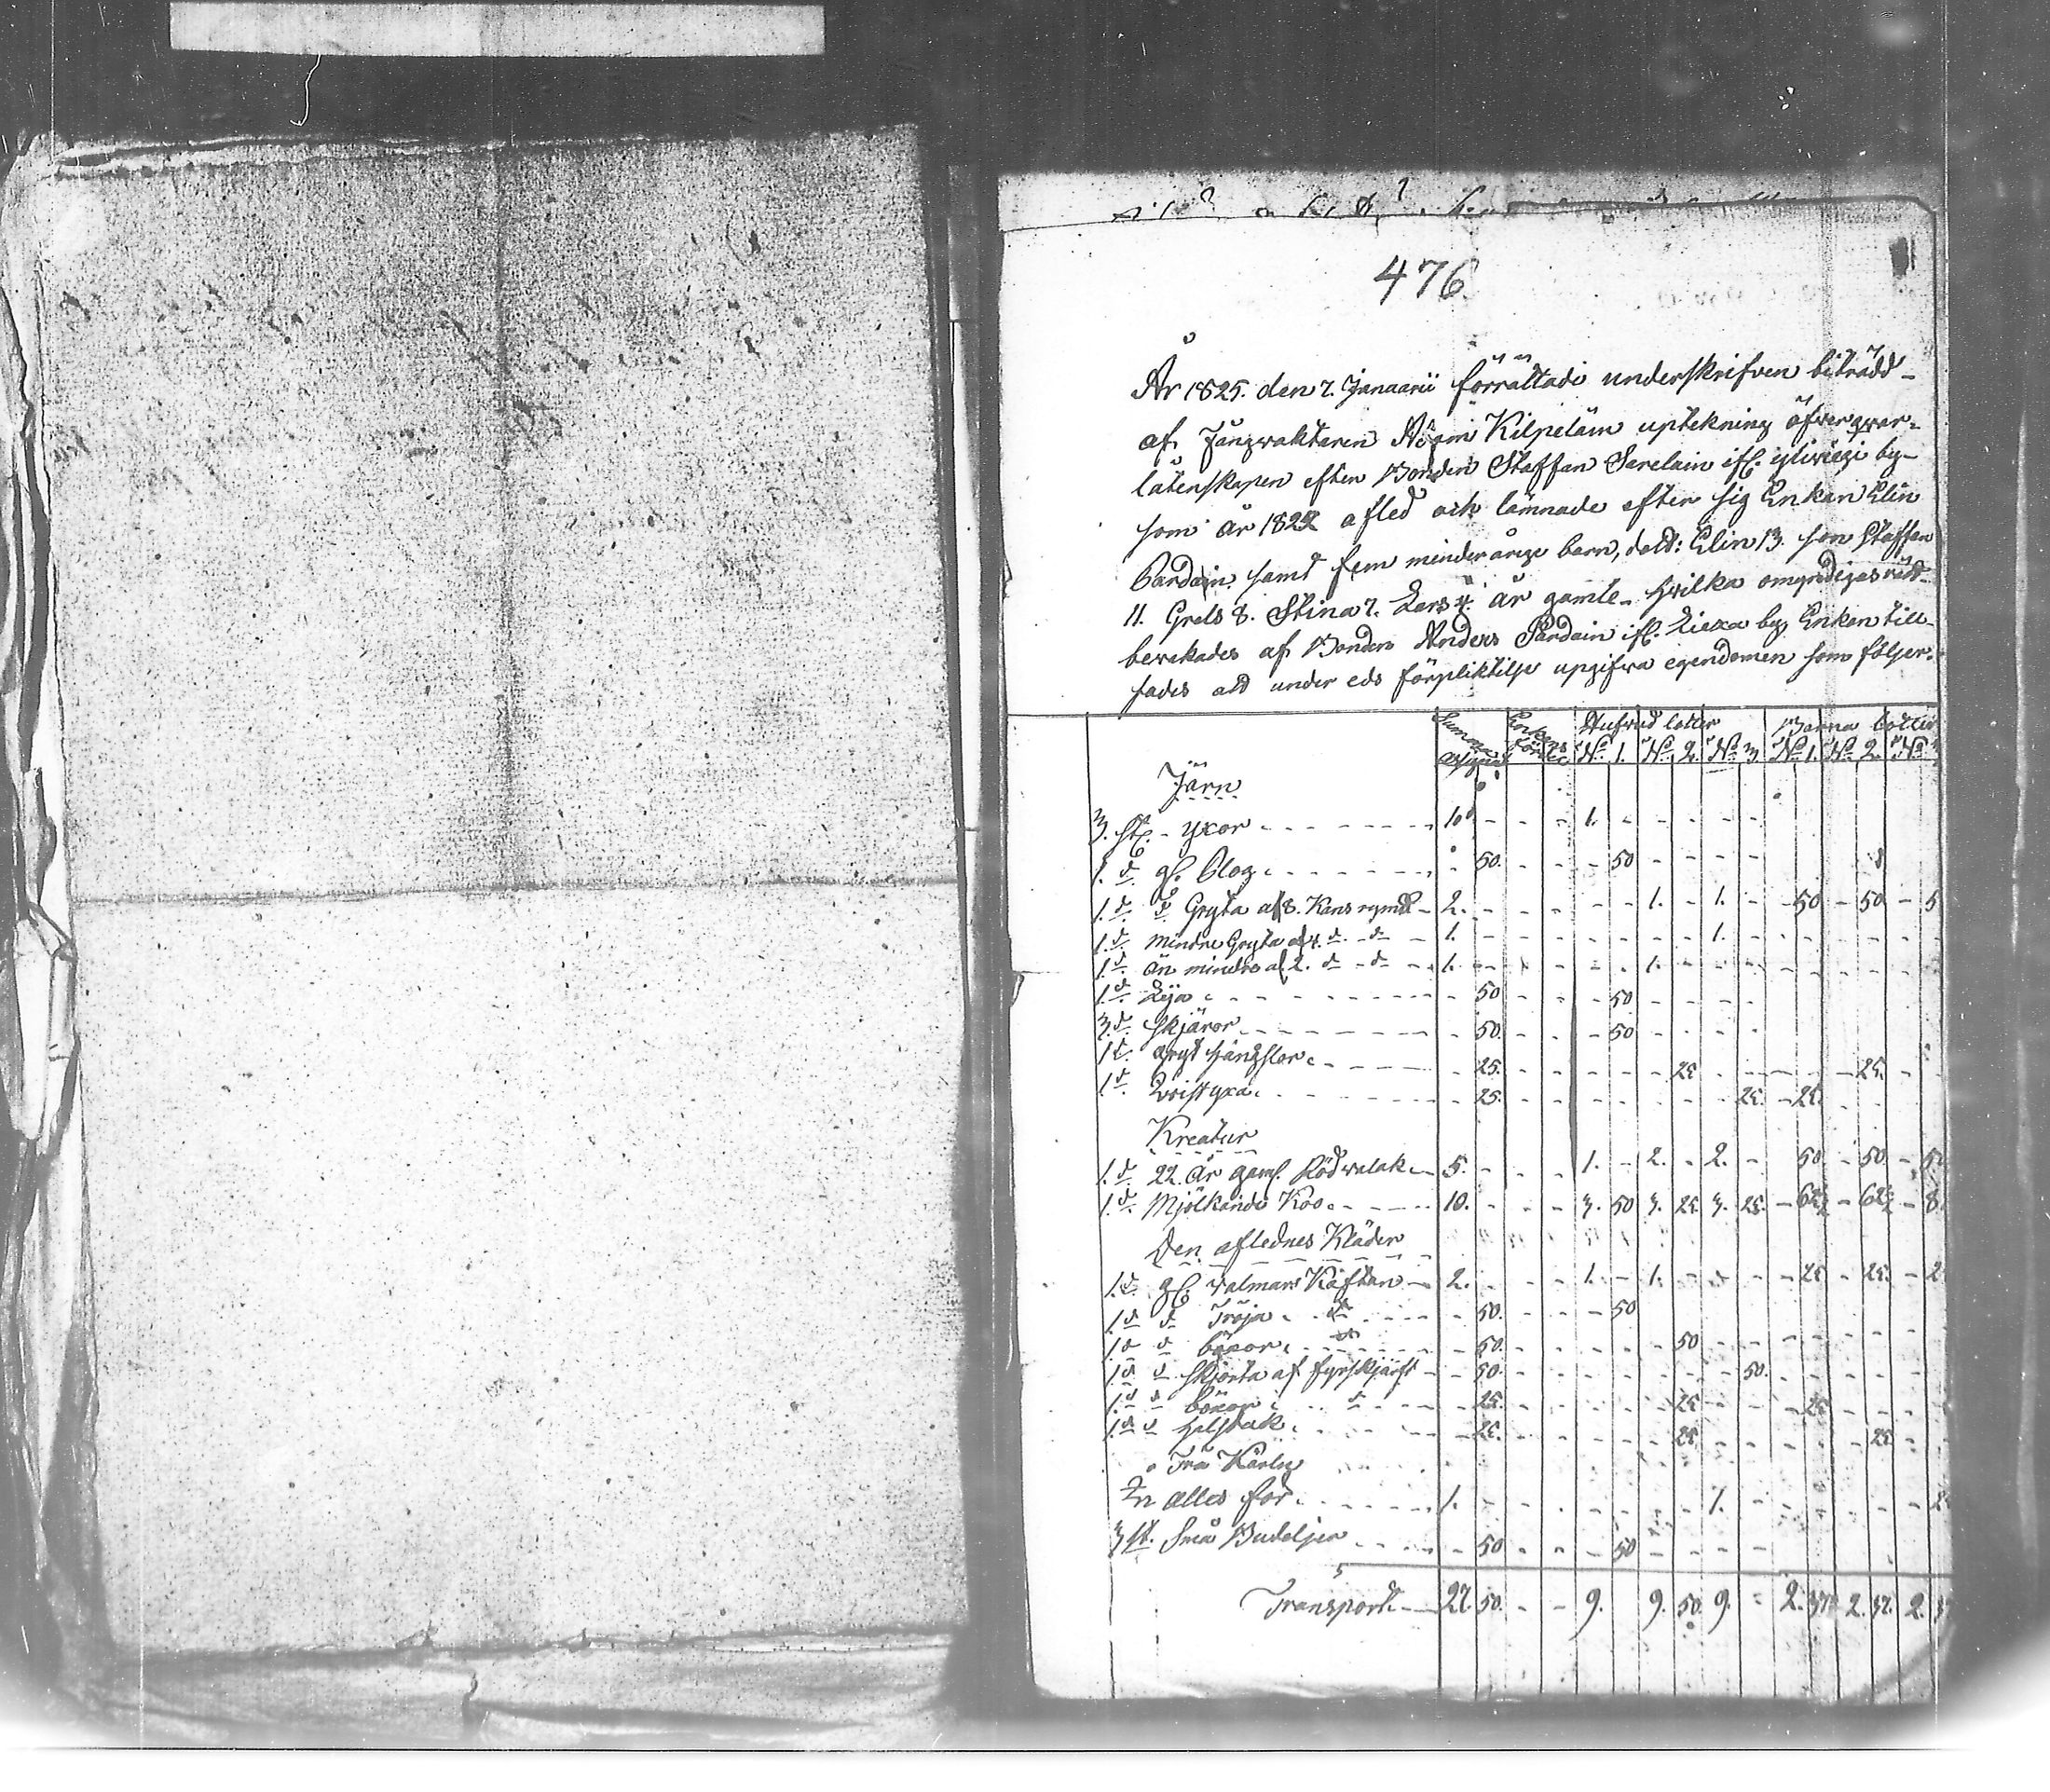 476
År 1825. den 7. Januarii förrättade underskrifven biträdd
af Fångvaktaren Kilpeläin uptekning öfwer qwar-
låtenskapen efter Bonden Staffan Sarelain by
som år 1822 afled och lämnade efter sig Enkan Elin
Pardain samt fem minderårige barn, Elin 13. son Staffan
11. Greta 8. Stina 7. Lars 4. år gamle hvilka omyndigas rätt
bewakades af Bonden Anders Pardain Liexa by, Enkan till-
sades att under eds förpliktelse upgifwa egendomen som följer.
Summa Enkans Hufwud lotter Barna lotter
N:o 1. N:o 2. N:o 3. N:o 1. N:o 2. N:o
Järn
3. st. yxor 1. 1.
1. d:o gl. Plog 50. 50
1. d:o d:o Gryta af 8. Kans rymd 2. 1. 1. 50 50 5
1. d:o mindre Gryta af 4. d:o d:o 1. 1.
1. d:o än mindre af 2. d:o d:o 1. 1.
1. d:o Lija 50 50
3. d:o Skjäror 50. 50
1 d:o gryt hängslor 25. 25 25.
1 d:o 25. 25. 25.
Kreatur
1. d:o 22. år gaml. Röd walak 5. 1. 2. 2. 50 50 5
1. d:o Mjölkande Koo 10. 3. 50 3. 25. 3. 25. 62½ 62½ 8
Den aflednes Kläder
1. d:o gl. walmars Kaftan 2. 1. 1. 25 25. 2
1. d:o d:o Tröja d:o 50. 50
1 d:o d:o böxor d:o 50. 50
1. d:o d:o Skjorta af fyrskjäft 50. 50.
1. d:o d:o böxor d:o 25. 25 25
1. d:o d:o halsduk 25. 25 25
Trä Kärlig
In alles för 1. 1. 2
3 st. Små Buteljer 50 50
Transport 27. 50. 9. 9. 50 9. 2. 37 2. 37. 2. 37